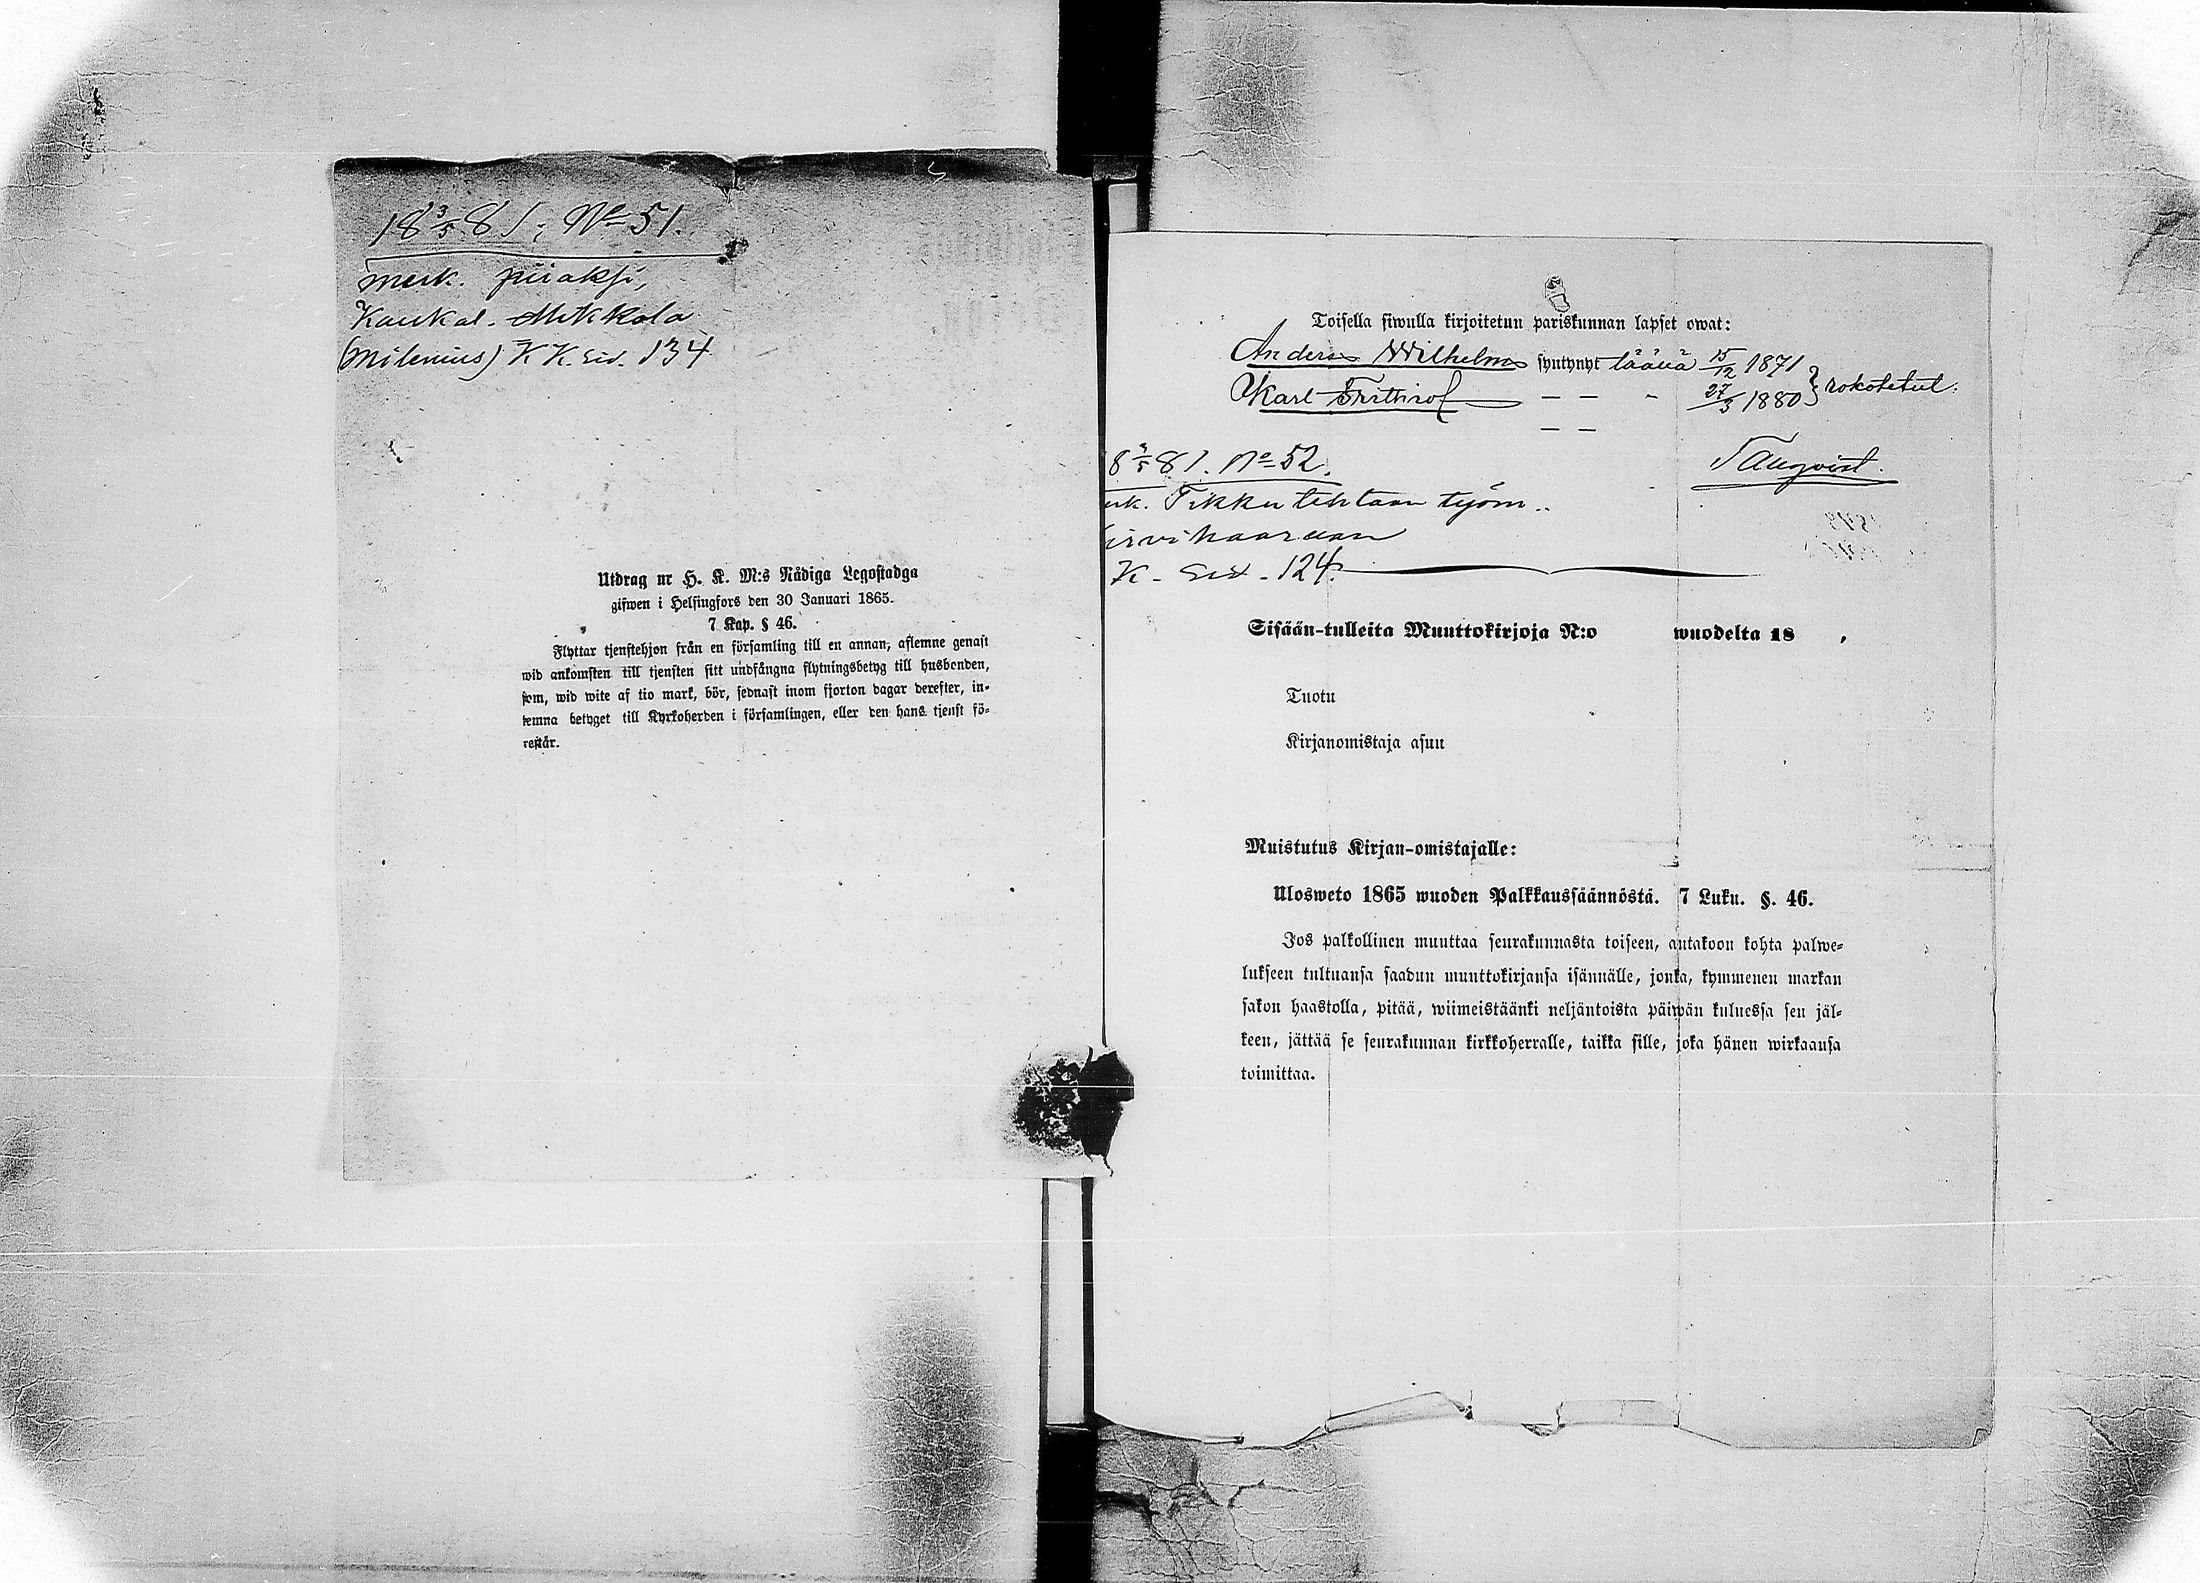 18 3/5 81; No 51.
merk. piiaksi,
Kaukal. Mikkola
(Milenius) KK. siv. 134
Utdrag ur H. K. M:s Nådiga Legostadga
gifwen i Helsingfors den 30 Januari 1865.
7 Kap. § 46.
Flyttar tjenstehjon från en församling till en annan, aflemne genast
wid ankomsten till tjensten sitt undfångna flytningsbetyg till husbonden,
som, wid wite af tio mark, bör, sednast inom fjorton dagar derefter, in-
lemna betyget till Kyrkoherden i församlingen, eller den hans tjenst fö-
restår.
Toisella siwulla kirjoitetun pariskunnan lapset owat:
Anders Wilhelm syntynyt täänä 15/12 1871
Karl Frithiof — — - 27/3 1880 } rokotetut:
— —
8 3/5 81. No 52.
Tikkutehtaan työm..
K - siv - 124.
Sisään-tulleita Muuttokirjoja N:o wuodelta 18 ,
Tuotu
Kirjanomistaja asuu
Muistutus Kirjan-omistajalle:
Ulosweto 1865 wuoden Palkkaussäännöstä. 7 Luku. §. 46.
Jos palkollinen muuttaa seurakunnasta toiseen, antakoon kohta palwe-
lukseen tultuansa saadun muuttokirjansa isännälle, jonka, kymmenen markan
sakon haastolla, pitää, wiimeistäänki neljäntoista päiwän kuluessa sen jäl-
keen, jättää se seurakunnan kirkkoherralle, taikka sille, joka hänen wirkaansa
toimittaa.